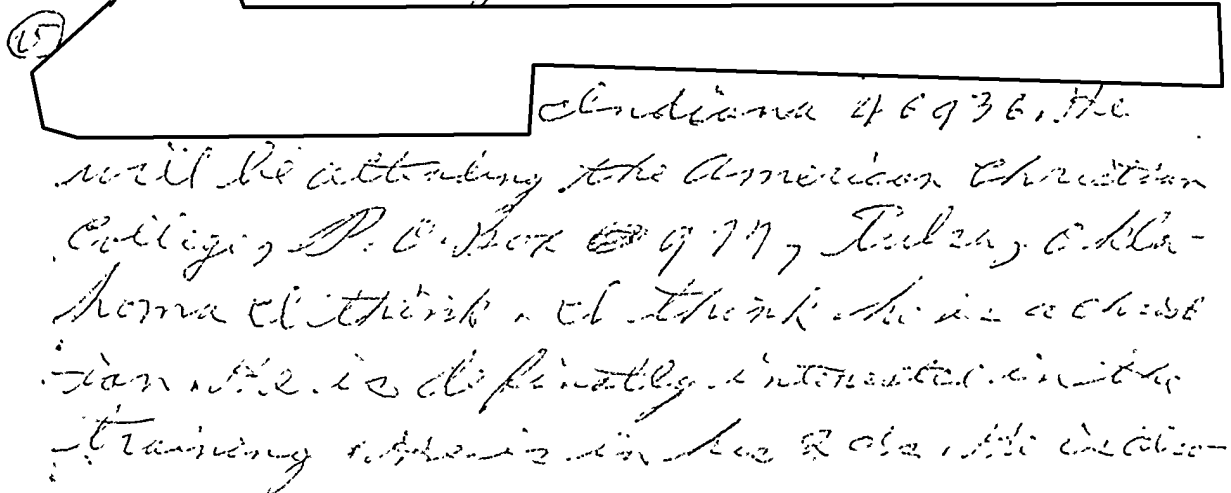 (15)
Indiana 46936. He
will be attending the American Christian
College, P.O. Box 977, Tulsa, Okla-
homa I think. I think he is a christ
ian. He is definatly interested in the
training. He is in his 20s. He is